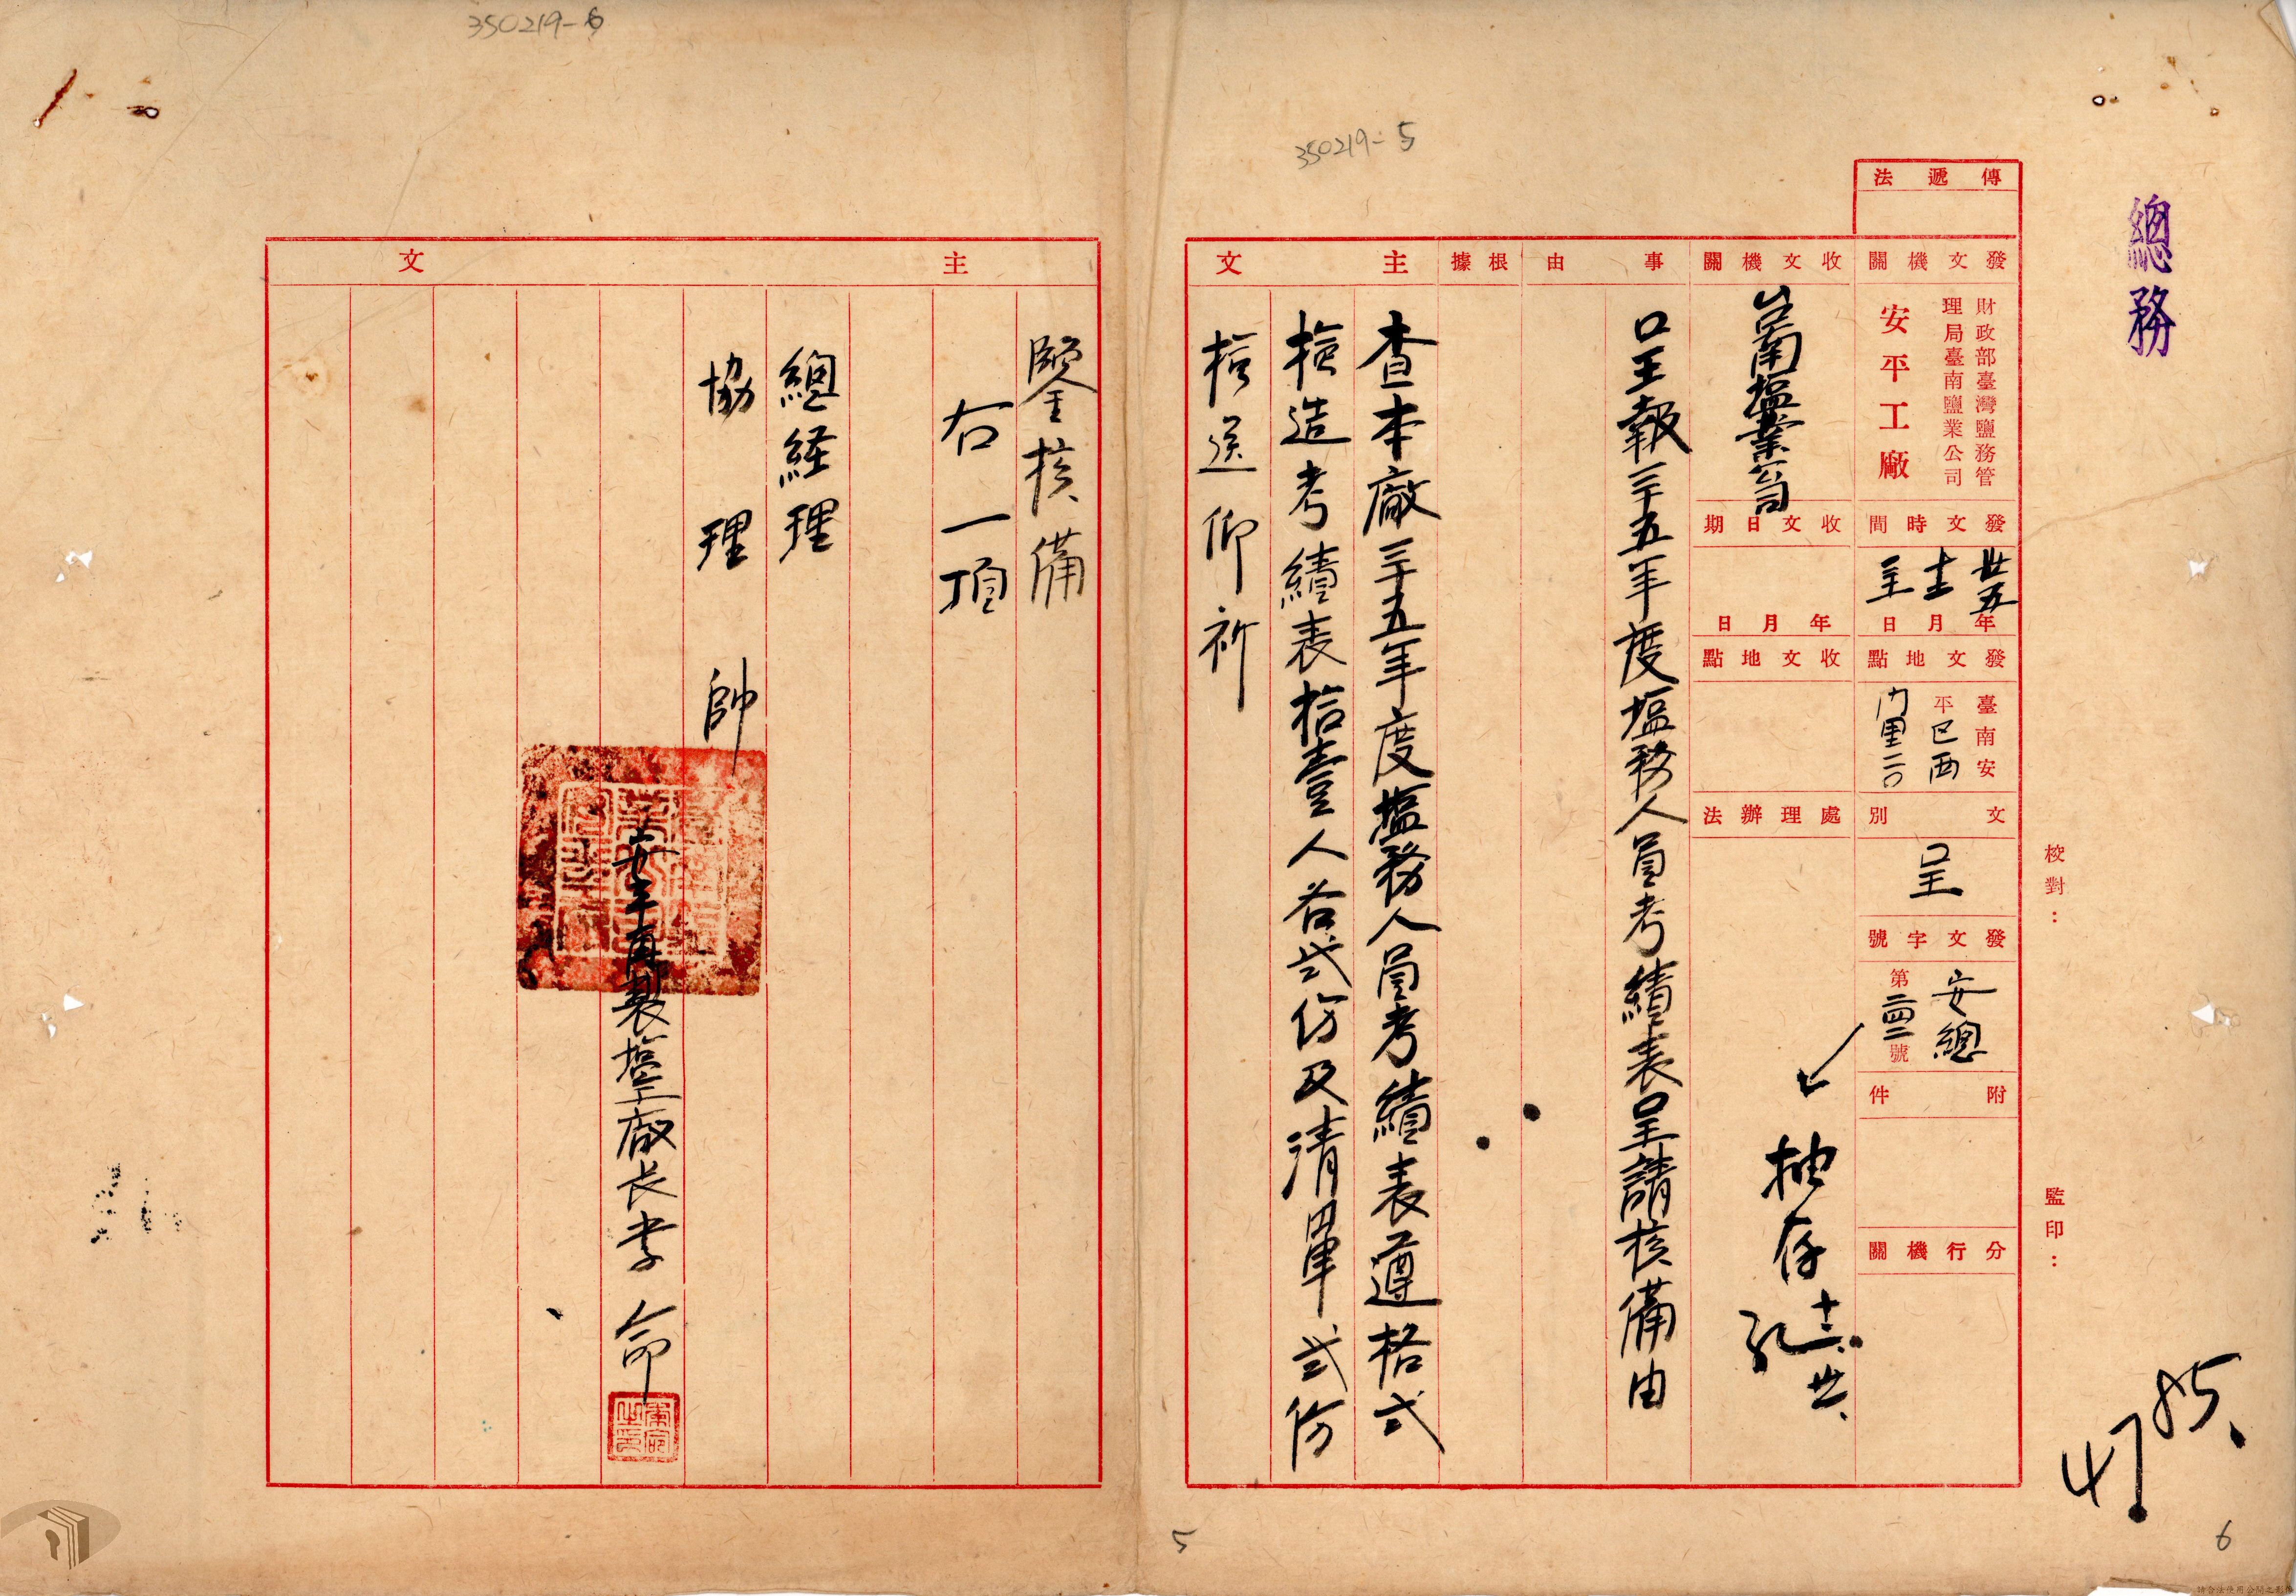 350219-6
350219-5
總務
傳遞法
發文機關
財政部臺灣鹽務管
理局臺南鹽業公司
安平工廠
發文時間
卅五年
十二月
日
發文地點
臺南安
平區西
門里二〇
文別
呈
發文字號
安總
第二四二號
附件
分行機關
校對：
監印：
4785
收文機關
台南塩業公司
收文日期
年月日
收文地點
處理辦法
抽存
十二、廿、
事由
呈報三十五年度塩務人員考績表呈請核備由
根據
主文
查本廠三十五年度塩務人員考績表遵格式
撿造考績表拾壹人各弍份及清單弍份
撿送仰祈
主文
鑒核備
右一項
總経理
協理 帥
安平再製塩工廠長李
5
6